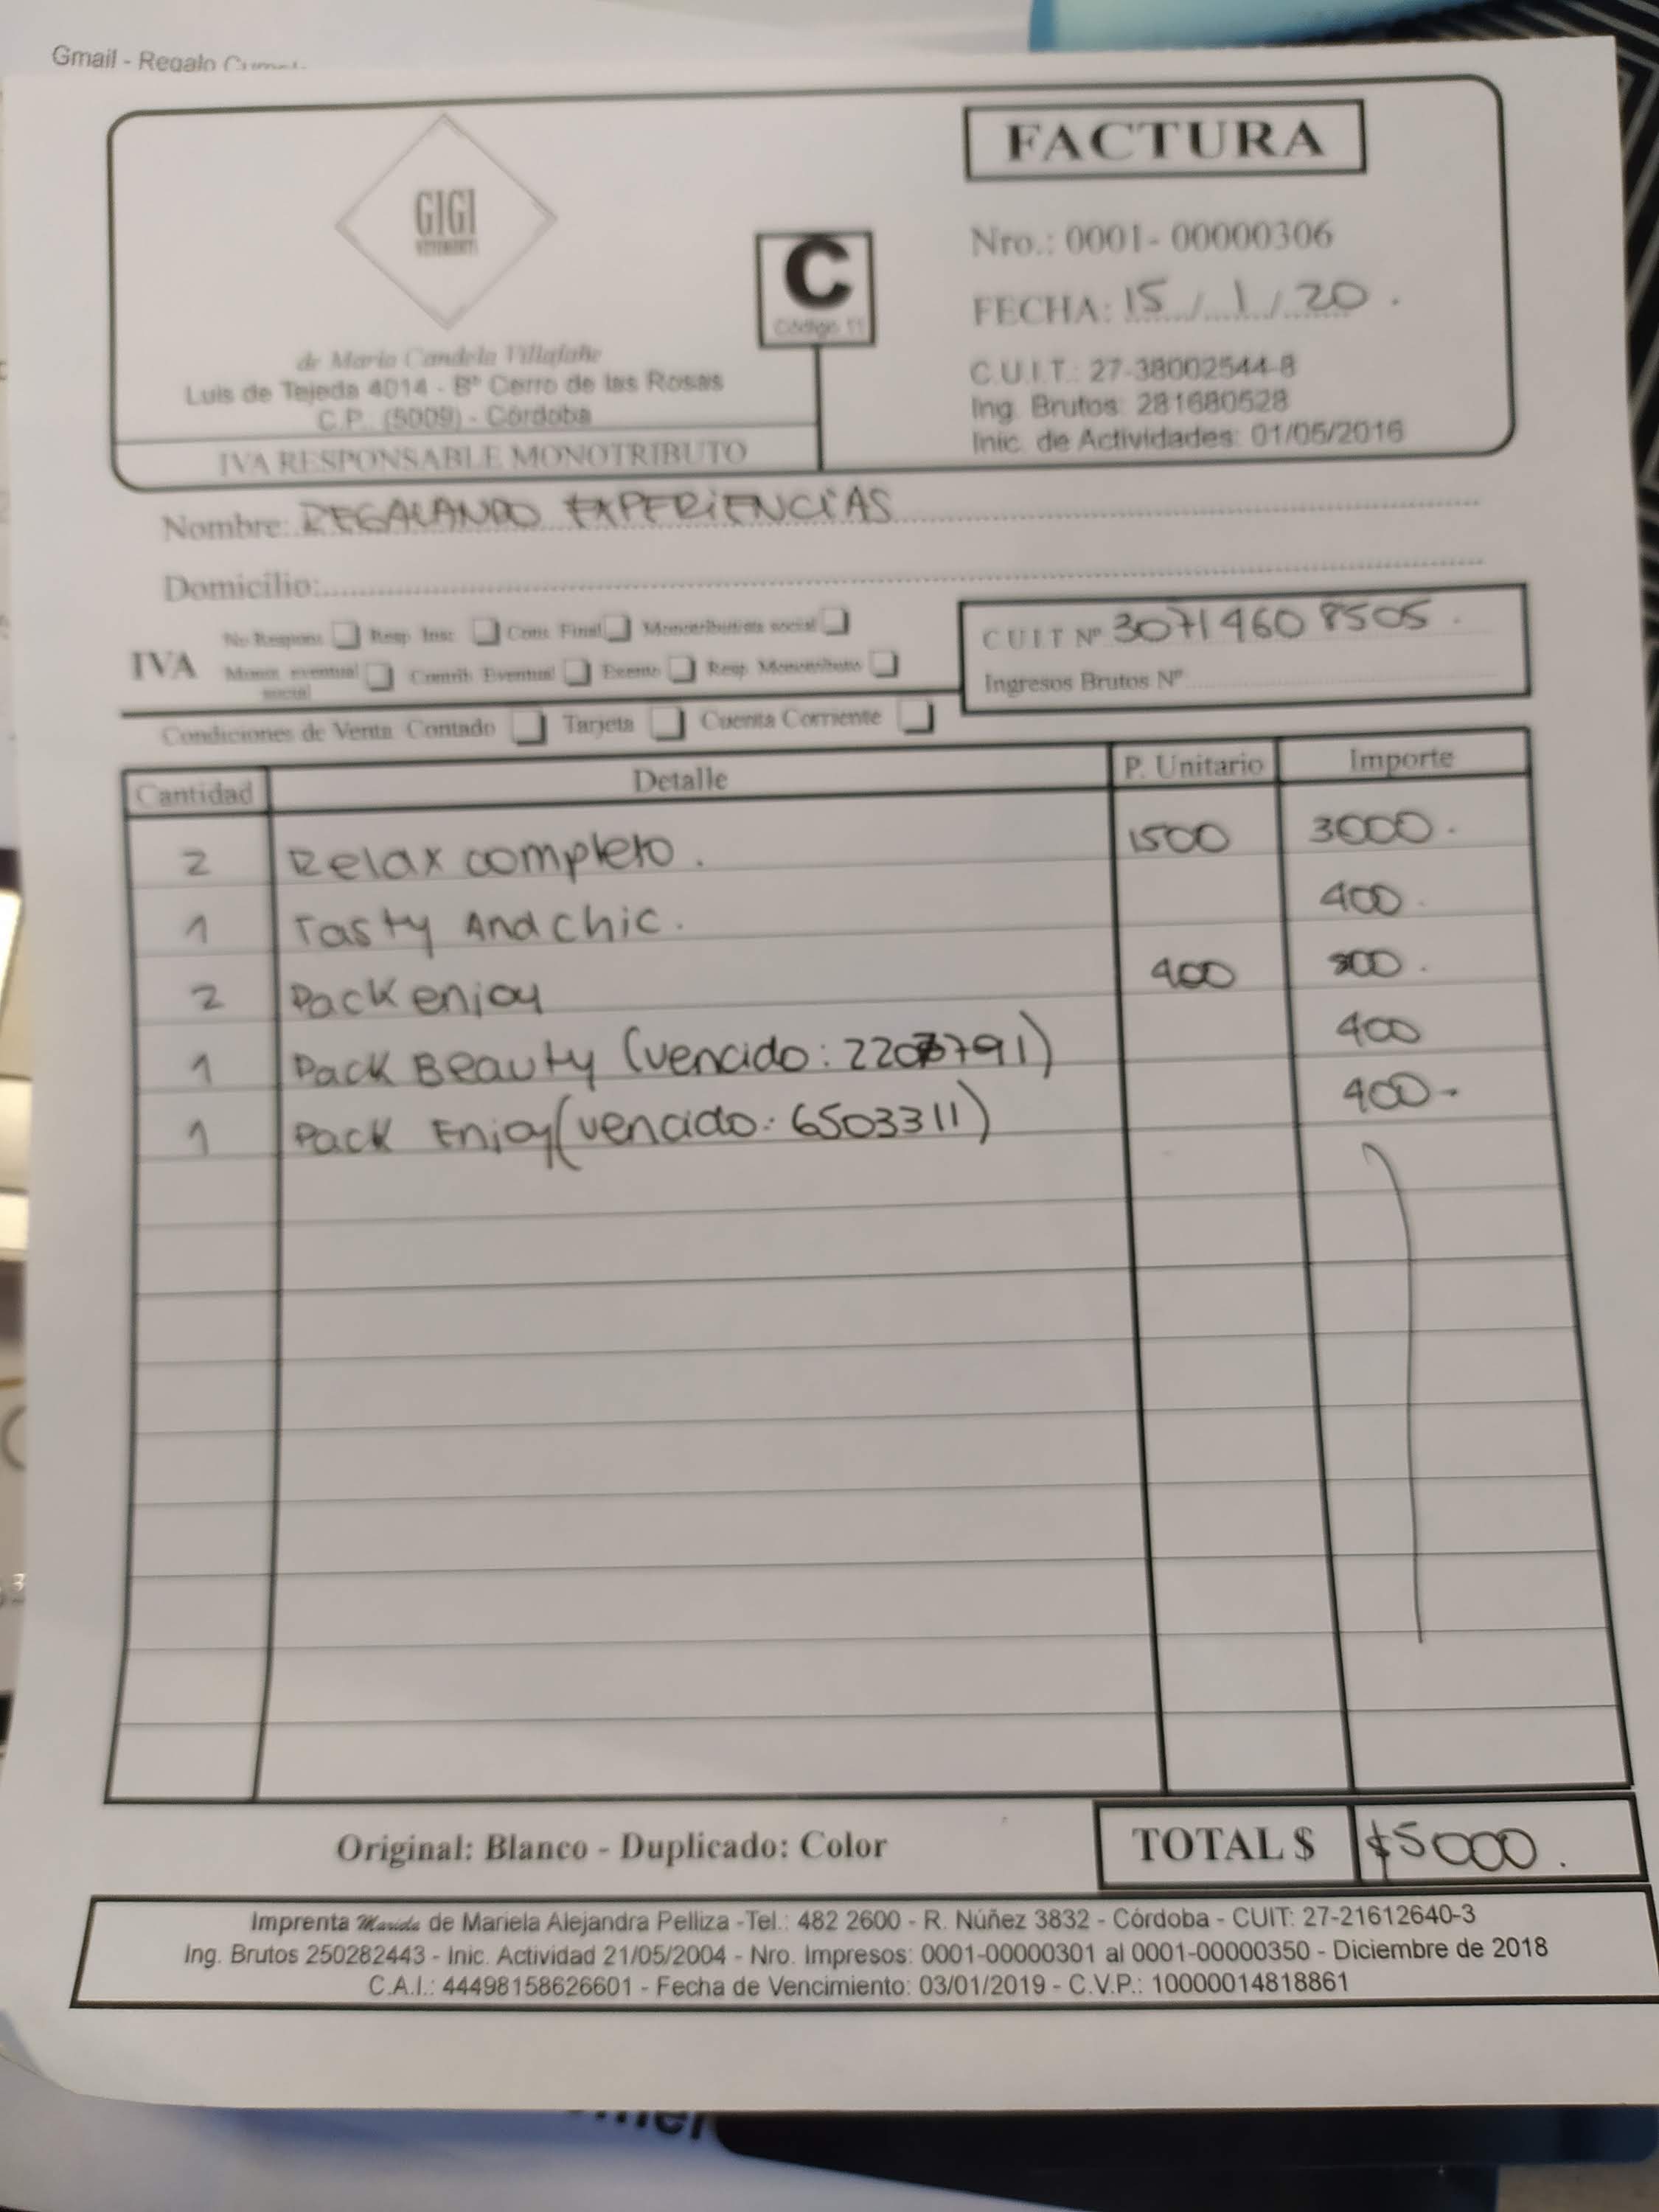 Gmail - Regalo
FACTURA
GIGI
C
Código 11
Nro.: 0001- 00000306
FECHA: 15 / 1 / 20 .
de María Candela Villafañe
Luis de Tejeda 4014 - Bº Cerro de las Rosas
C.P. (5009) - Córdoba
C.U.I.T.: 27-38002544-8
Ing. Brutos: 281680528
Inic. de Actividades: 01/05/2016
IVA RESPONSABLE MONOTRIBUTO
Nombre: REGALANDO EXPERIENCIAS
Domicilio:
IVA
No Respons Resp Insc Cons Final Monotributista social
Monot eventual social Contrib Eventual Exento Resp Monotributo
CUIT Nº 30714608505
Ingresos Brutos Nº
Condiciones de Venta Contado Tarjeta Cuenta Corriente
Cantidad Detalle P. Unitario Importe
2 Relax completo. 1500 3000.
1 Tasty And chic. 400.
2 Pack enjoy 400 800.
1 Pack Beauty (vencido: ) 400
1 Pack Enjoy (vencido: 6503311) 400-
Original: Blanco - Duplicado: Color
TOTAL $ $5000.
Imprenta de Mariela Alejandra Pelliza -Tel.: 482 2600 - R. Núñez 3832 - Córdoba - CUIT: 27-21612640-3
Ing. Brutos 250282443 - Inic. Actividad 21/05/2004 - Nro. Impresos: 0001-00000301 al 0001-00000350 - Diciembre de 2018
C.A.I.: 44498158626601 - Fecha de Vencimiento: 03/01/2019 - C.V.P.: 10000014818861